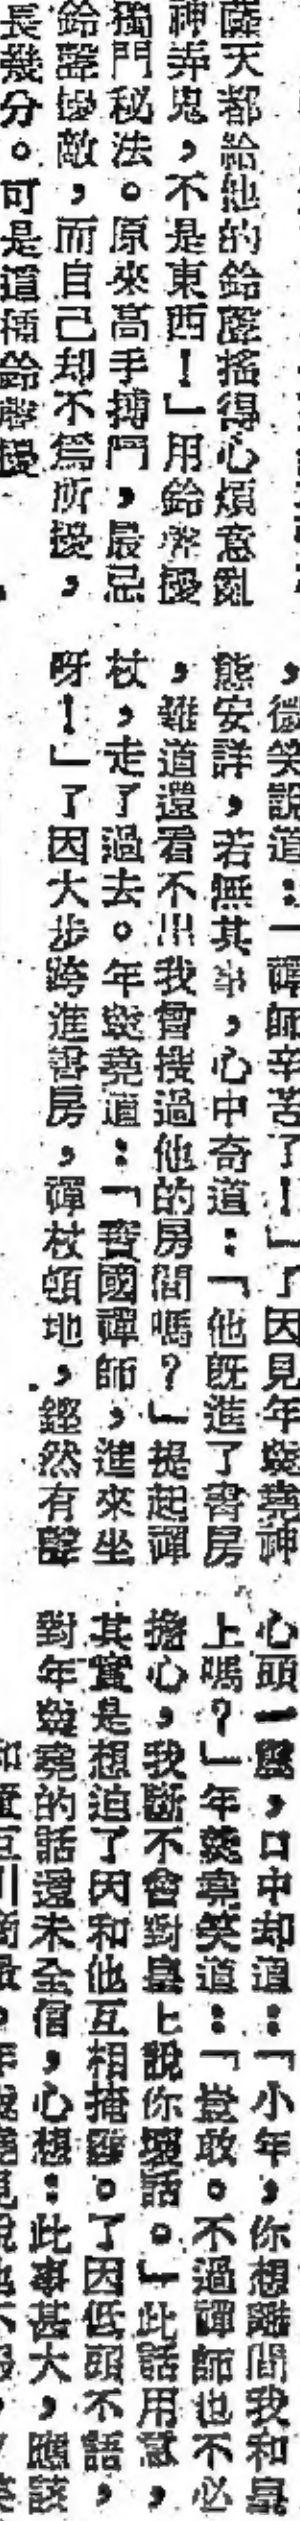 薩天都給他的鈴聲搖得心煩意亂
神弄鬼，不是東西！」用鈴聲擾
獨門秘法。原來高手搏鬥，最忌
鈴聲擾敵，而自己却不爲所擾，
長幾分。可是這種鈴聲擾
，微笑說道：「禪師辛苦了！」了因見年羹堯神
態安詳，若無其事，心中奇道：「他既進了書房
，難道還看不出我曾搜過他的房間嗎？」提起禪
杖，走了過去。年羹堯道：「寶國禪師，進來坐
呀！」了因大步跨進書房，禪杖頓地，鏗然有聲
心頭一震，口中却道：「小年，你想離間我和皇
上嗎？」年羹堯笑道：「豈敢。不過禪師也不必
擔心，我斷不會對皇上說你壞話。」此話用意，
其實是想迫了因和他互相掩飾。了因低頭不語，
對年羹堯的話還未全信，心想：此事甚大，應該